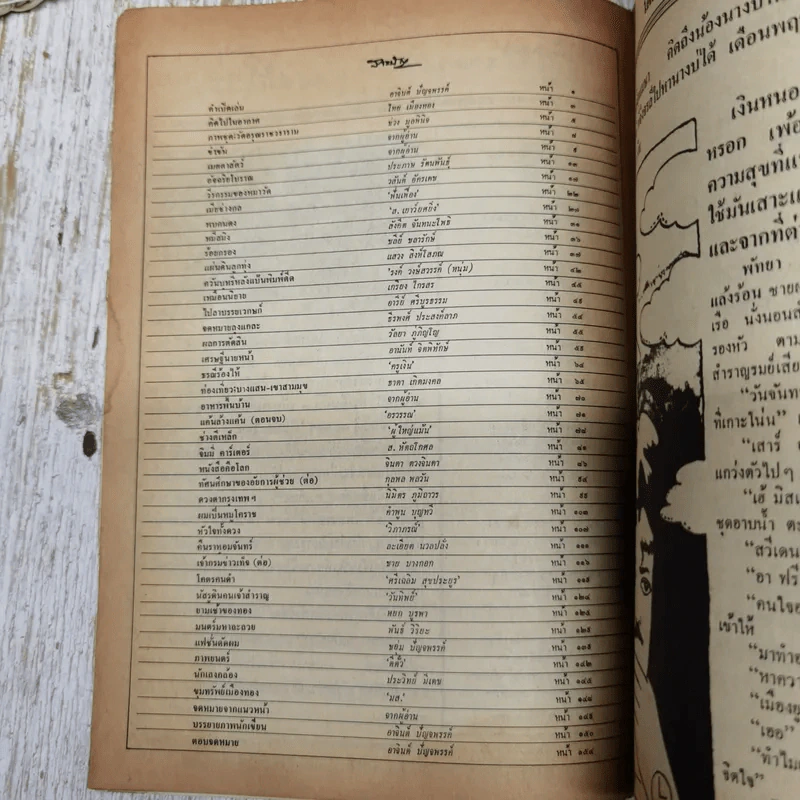 สารบัญ
คำเปิดเล่ม อาจินต์ ปัญจพรรค์ หน้า ๑
คิดไปในอากาศ ไทย เมืองทอง หน้า ๓
ภาพชุด:วัดอรุณราชวราราม ช่วง มูลพินิจ หน้า ๕
ขำขัน จากผู้อ่าน หน้า ๗
เมตตาสัตว์ จากผู้อ่าน หน้า ๙
อัจฉริยโบราณ ประภาษ รัตนพันธุ์ หน้า ๑๓
วีรกรรมของหมาวัด วสันต์ อัครเดช หน้า ๑๘
เมียช่างกล 'ฟื้นเฟื่อง' หน้า ๒๒
พบกนดง 'ส. เยาว์ยคยิ่ง' หน้า ๒๗
หมีสมิง สังคีต จันทนะโพธิ หน้า ๓๑
ร้อยกรอง ชลีย์ ชลารักษ์ หน้า ๓๖
แผ่นดินลูกทุ่ง แสวง สิงห์โสภณ หน้า ๓๗
ควันบุหรี่หลังแป้นพิมพ์ดีด 'รงค์ วงษ์สวรรค์ (หนุ่ม) หน้า ๔๒
เหมือนนิยาย เกรียง ไกรสร หน้า ๔๕
ไปลาบรรยเวกษก์ อารีย์ ศรีบูรธรรม หน้า ๔๙
จดหมายลงแกละ ธีรพงศ์ ประสงค์ลาภ หน้า ๕๔
ผลการตัดสิน วัลยา ภู่ภิญโญ หน้า ๕๕
เศรษฐีนายหน้า อานันท์ จิตพิทักษ์ หน้า ๕๙
ธรณีร้องไห้ 'ครูเงิน' หน้า ๖๔
ท่องเที่ยว:บางแสน-เขาสามมุข ธาดา เกิดมงคล หน้า ๖๕
อาหารพื้นบ้าน จากผู้อ่าน หน้า ๗๐
แค้นล้างแค้น (ตอนจบ) 'อรวรรณ' หน้า ๗๑
ช่างตีเหล็ก 'ผู้ใหญ่แม้น'
จิมมี่ คาร์เตอร์ ส. หัตถโกศล
หนังสือคือโลก จินดา ดวงจินดา หน้า ๙๖
ทัศนศึกษาของอัยการผู้ช่วย (ต่อ) กุลพล พลวัน
ดวงตากรุงเทพฯ นิมิตร ภูมิถาวร หน้า ๙๙
ผมเป็นหมูโคราช คำพูน บุญทวี หน้า ๑๐๓
หัวใจทั้งดวง 'วิภาภรณ์' หน้า ๑๐๗
คืนราหูอมจันทร์ ละเอียด นวลปลั่ง หน้า ๑๑๑
เจ้ากรมข่าวเท็จ (ต่อ) ชาย บางกอก หน้า ๑๑๖
โคตรคนดำ 'ศรีเฉลิม สุขประยูร' หน้า ๑๑๙
นัสรูดินคนเจ้าสำราญ 'วันทิพย์' หน้า ๑๒๔
ยามเช้าของทอง หยก บูรพา หน้า ๑๒๕
มนตร์มหาละลวย พันธ์ วิริยะ หน้า ๑๒๙
แฟชั่นตัดผม ขยัน ปัญจพรรค์ หน้า ๑๓๕
ภาพยนตร์ 'ดีดี' หน้า ๑๔๒
นักเลงกลอง ประวิทย์ มีเดช หน้า ๑๔๕
ขุมทรัพย์เมืองทอง 'มส.' หน้า ๑๔๘
จดหมายจากแนวหน้า จากผู้อ่าน หน้า ๑๔๙
บรรยายภาพนักเขียน อาจินต์ ปัญจพรรค์ หน้า ๑๕๐
ตอบจดหมาย อาจินต์ ปัญจพรรค์ หน้า ๑๕๔
คิดถึงน้องนางบ้าน
ไปหานางบ่ได้ เดือนพฤ
เงินหนอ
หรอก เพ้อ
ความสุขที่แ
ใช้มันเสาะแ
และจากที่ต่
พัทยา
แล้งร้อน ชายผ
เรือ นั่งนอนส
รองหัว ตาม
สำราญรมย์เสีย
"วันจันท
ที่เกาะโน่น"
"เสาร์
แกว่งตัวไปๆ
"เฮ้ มิส
ชุดอาบน้ำ ตะ
"สวีเดน
"อา ฟรี
"คนใจอ
เข้าให้
"มาทำอ
"หาควา
"เมืองยู
"เออ"
"ทำไม
จิตใจ"